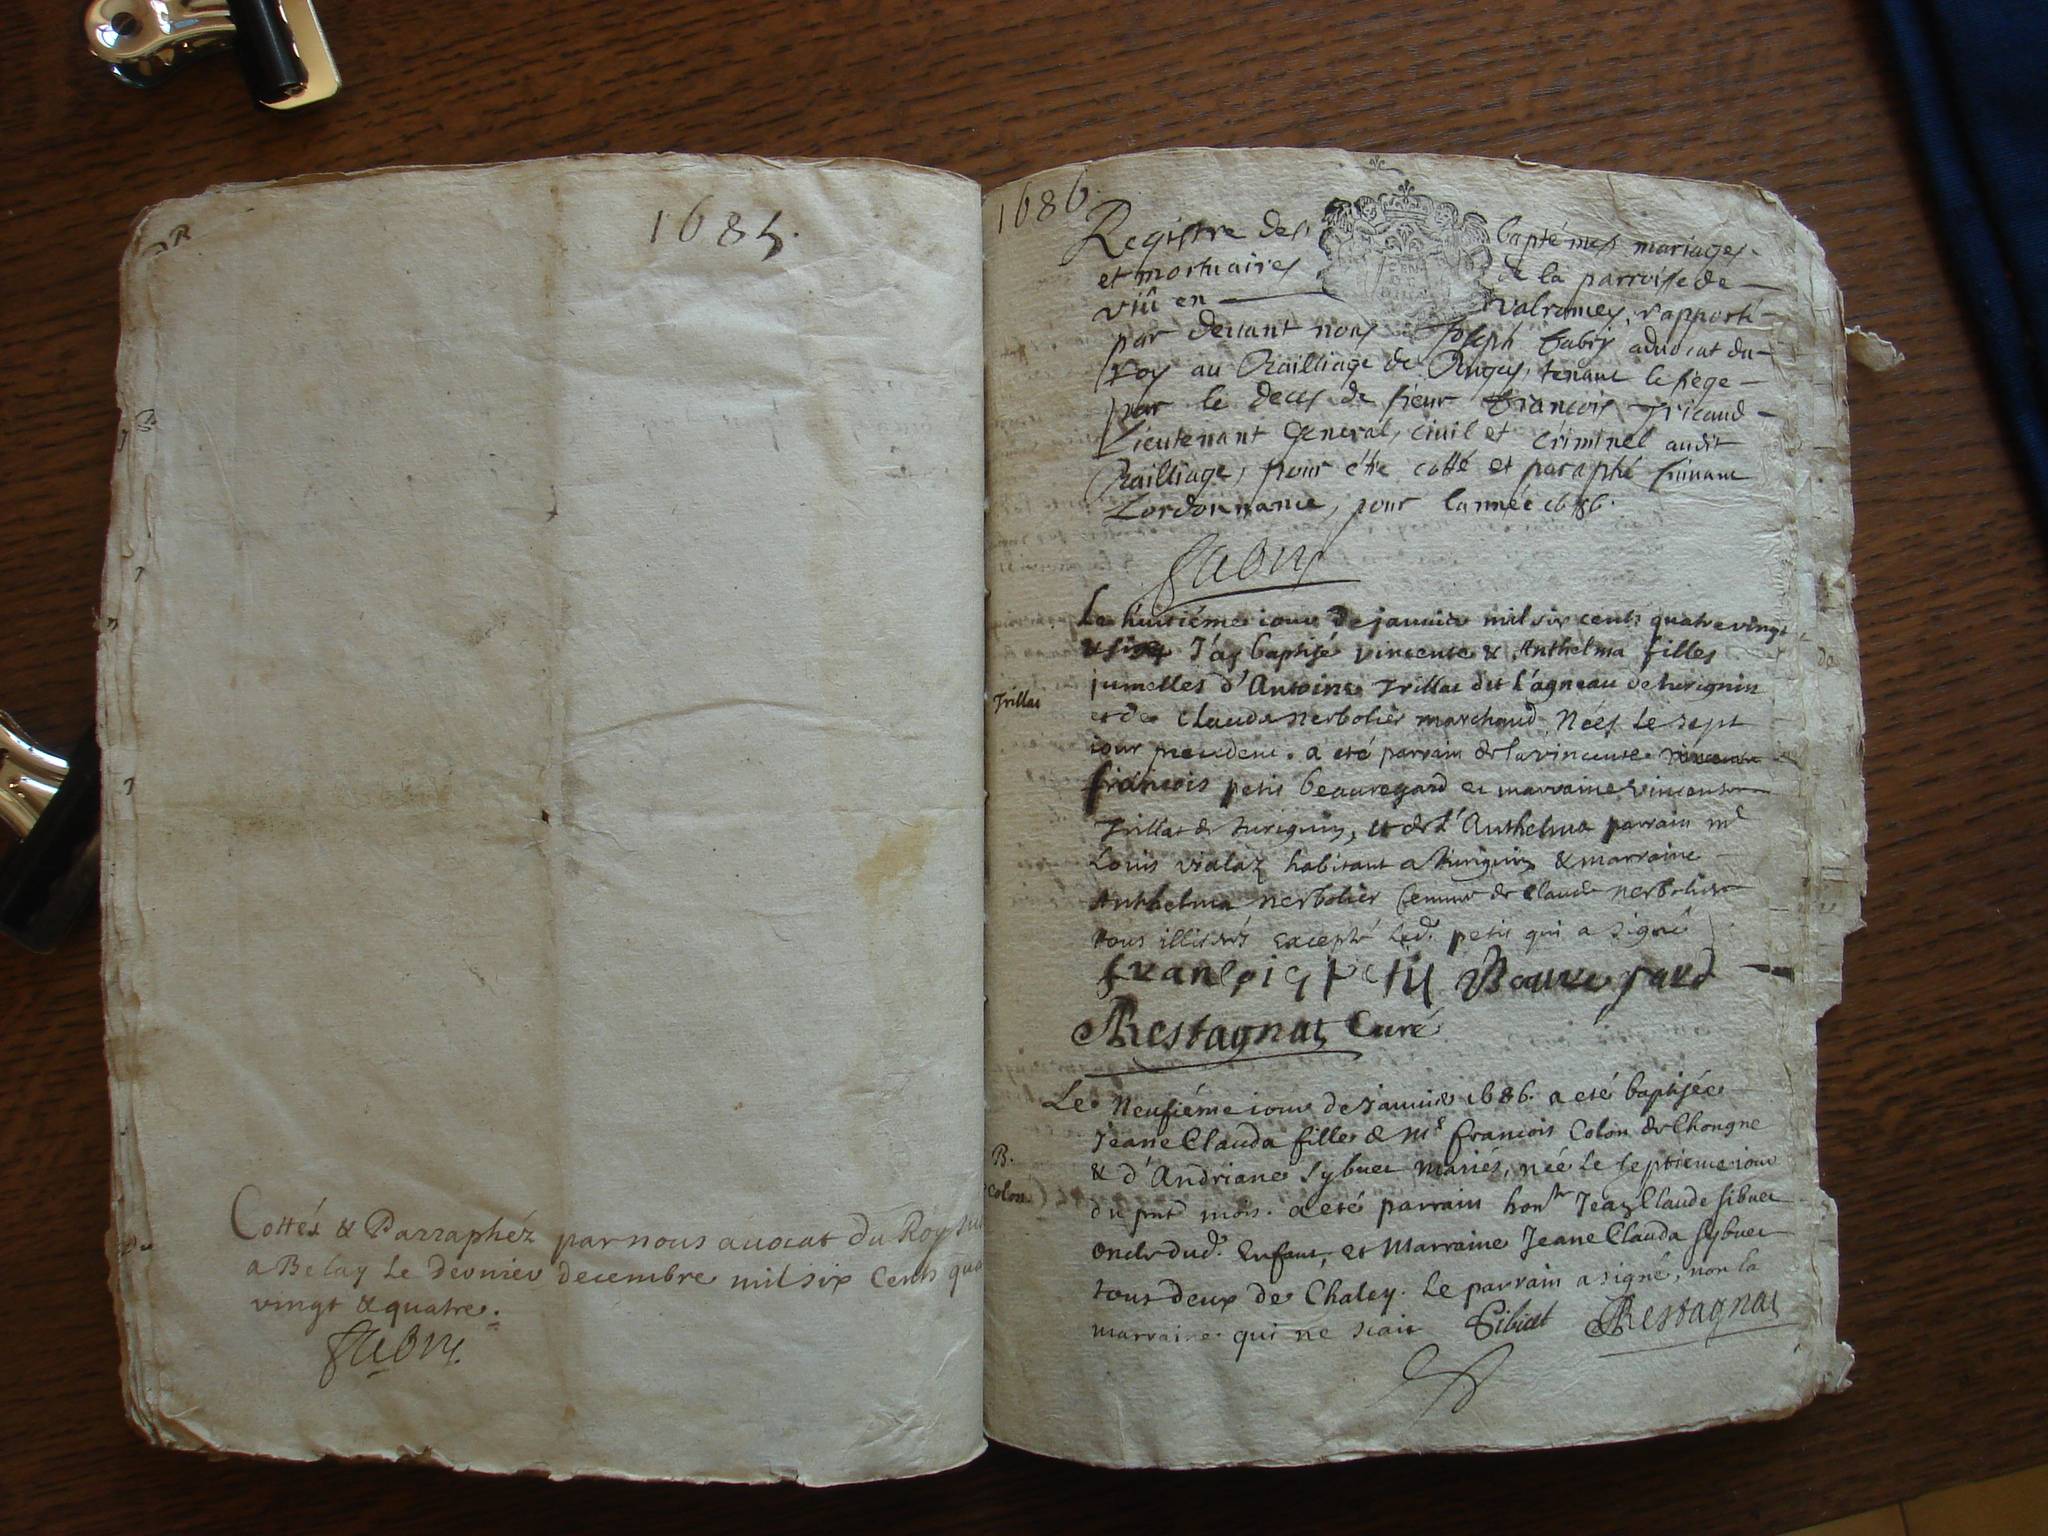 1685.
Cottés & Parraphéz par nous avocat du Roy
a Belay le dernier decembre mil six Cents qua
vingt & quatre.
1686.
Registre des baptémes mariages
et mortuaires de la parroisse de
viû en valromey, rapporté
par deuant nous Joseph fabry aduocat du
roy au Bailliage de Bugey, tenant le siege
par le deces de sieur francois Tricaud
Lieutenant General, ciuil et criminel audit
Bailliage, pour étre cotté et paraphé suiuant
Lordonnance, pour lannée 1686.
fabry
Le huitiéme iour de januier mil six cents quatre vingt
& six J'ay baptisé vincente & Anthelma filles
Trillat
jumelles d'Antoine Trillat dit l'agneau de
et de Clauda nerbolier marchand Nées le sept
iour precedent. a eté parrain de la vincente
francois petit beauregard et marraine vincente
Trillat de et de l'Anthelma parrain mᵉ
Louis vialaz habitant a & marraine
Anthelma nerbolier femme de Claude nerbolier
tous illitérés excepté led. petit qui a signé
francois petit Beauregard
Restagnat Curé
Le Neufiéme iour de Januier 1686. a eté baptisée
Jeane Clauda fille de Mᵉ francois Colon de Chongne
B.
Colon
& d'Andriane Sybuet mariés, née le septieme iour
du pnt mois. a eté parrain honᵇˡᵉ Jean Claude sibuet
oncle dud. Enfant, et Marraine Jeane Clauda sybuet
tous deux de Chaley. Le parrain a signé, non la
marraine qui ne scait Sibuet Restagnat